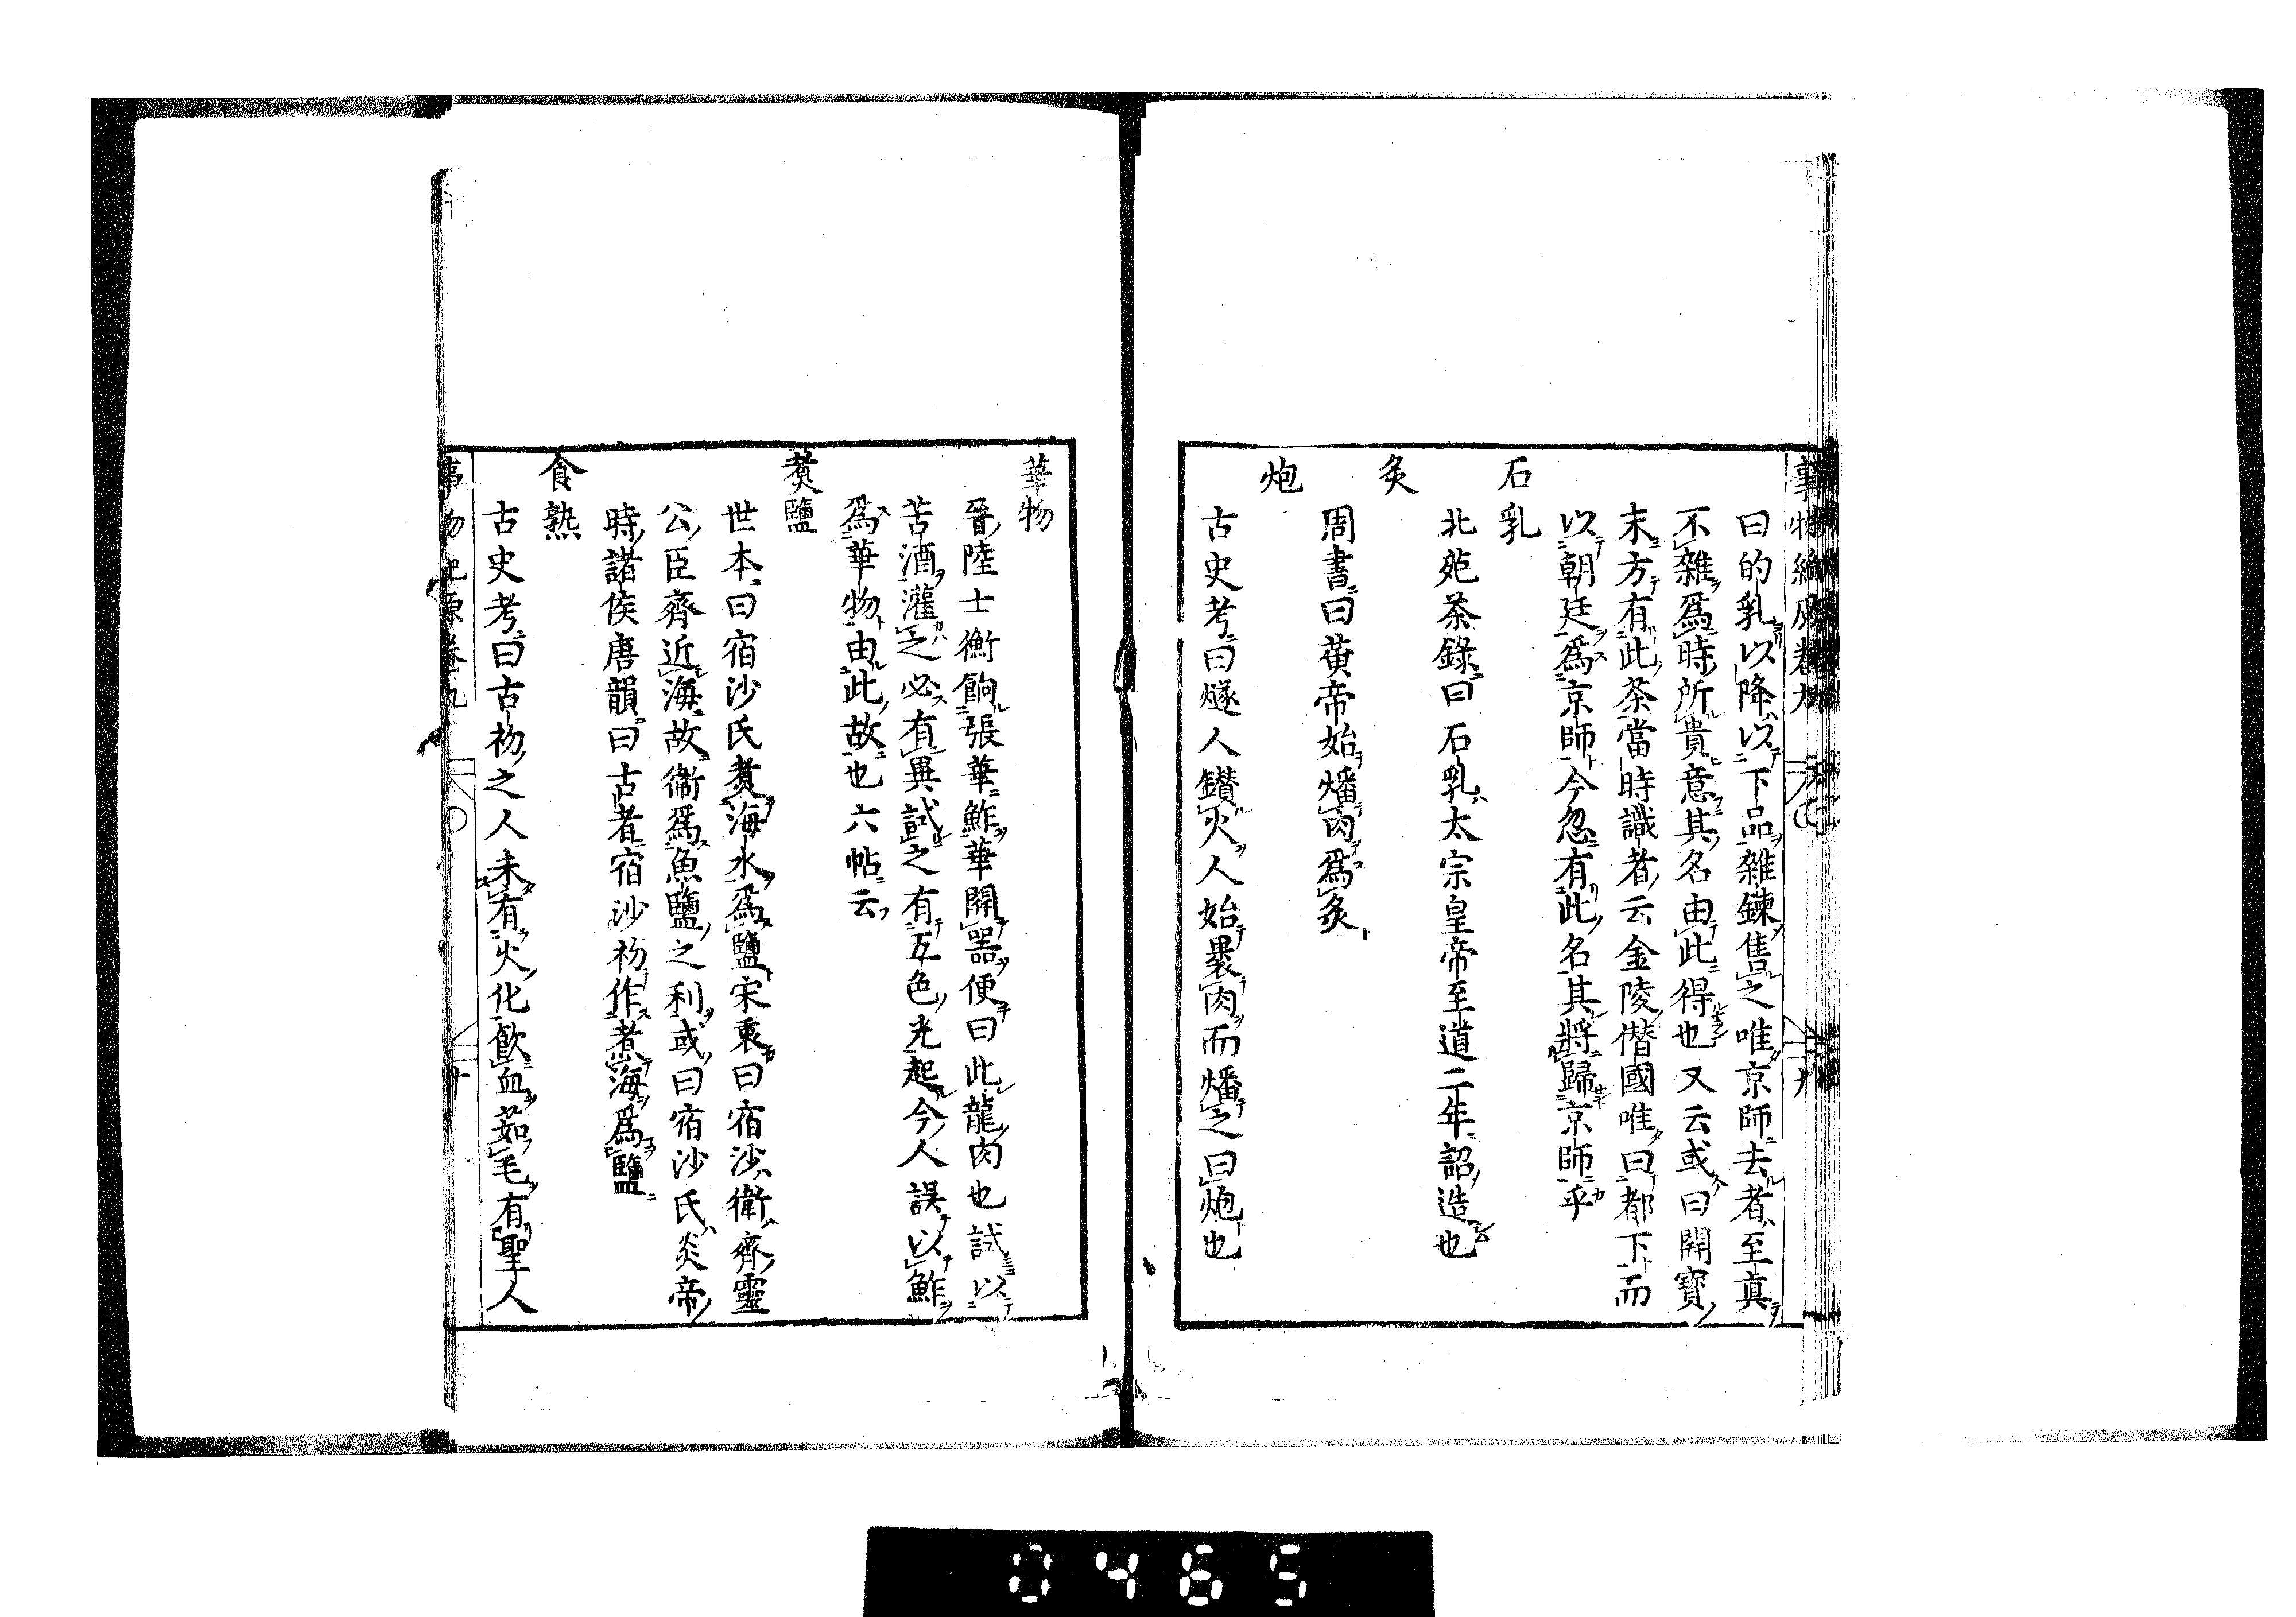 曰的乳以降以下品雜鍊售之唯京師去者至真
不雜爲時所貴意其名由此得也又云或曰開寶
末方有此茶當時識者云金陵僣國唯曰都下而
以朝廷爲京師今忽有此名其將歸京師乎
石乳
北苑茶錄曰石乳太宗皇帝至道二年詔造也
炙
周書曰黄帝始燔肉爲炙
炮
古史考曰燧人鑚火人始裹肉而燔之曰炮也
華物
晉陸士衡餉張華鮓華開器便曰此龍肉也試以
苦酒灌之必有異試之有五色光起今人誤以鮓
爲華物由此故也六帖云
煑鹽
世本曰宿沙氏煑海水爲鹽宋衷曰宿沙衛齊靈
公臣齊近海故衞爲魚鹽之利或曰宿沙氏炎帝
時諸侯唐韻曰古者宿沙初作煮海爲鹽
食熟
古史考曰古初之人未有火化飲血茹毛有聖人
事物紀原卷九
0465